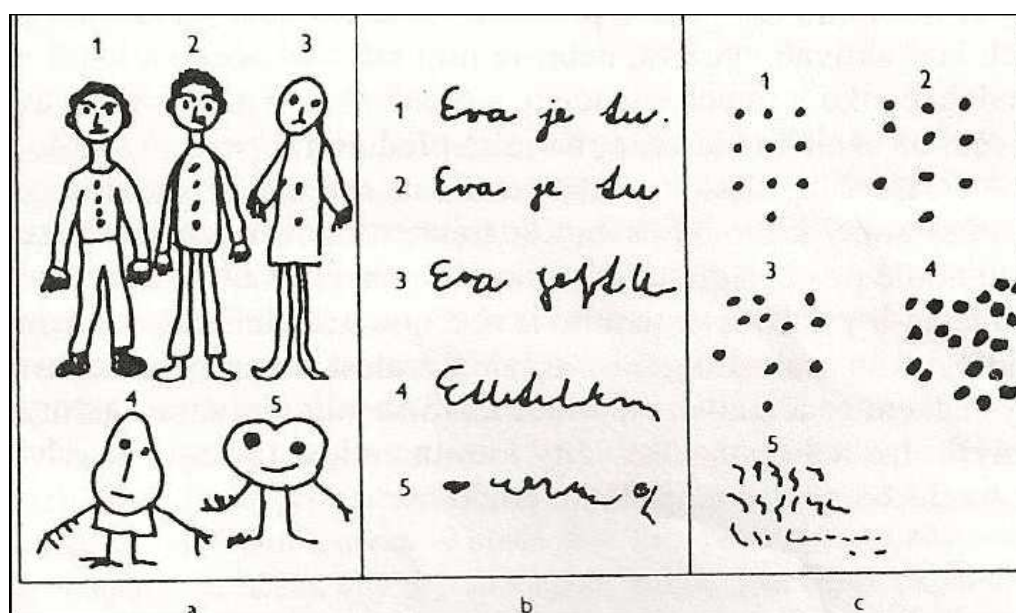 1 2 3
4 5
a
1 Eva je tu.
2 Eva je tu
3 Eva
4
5
b
1 2
3 4
5
c